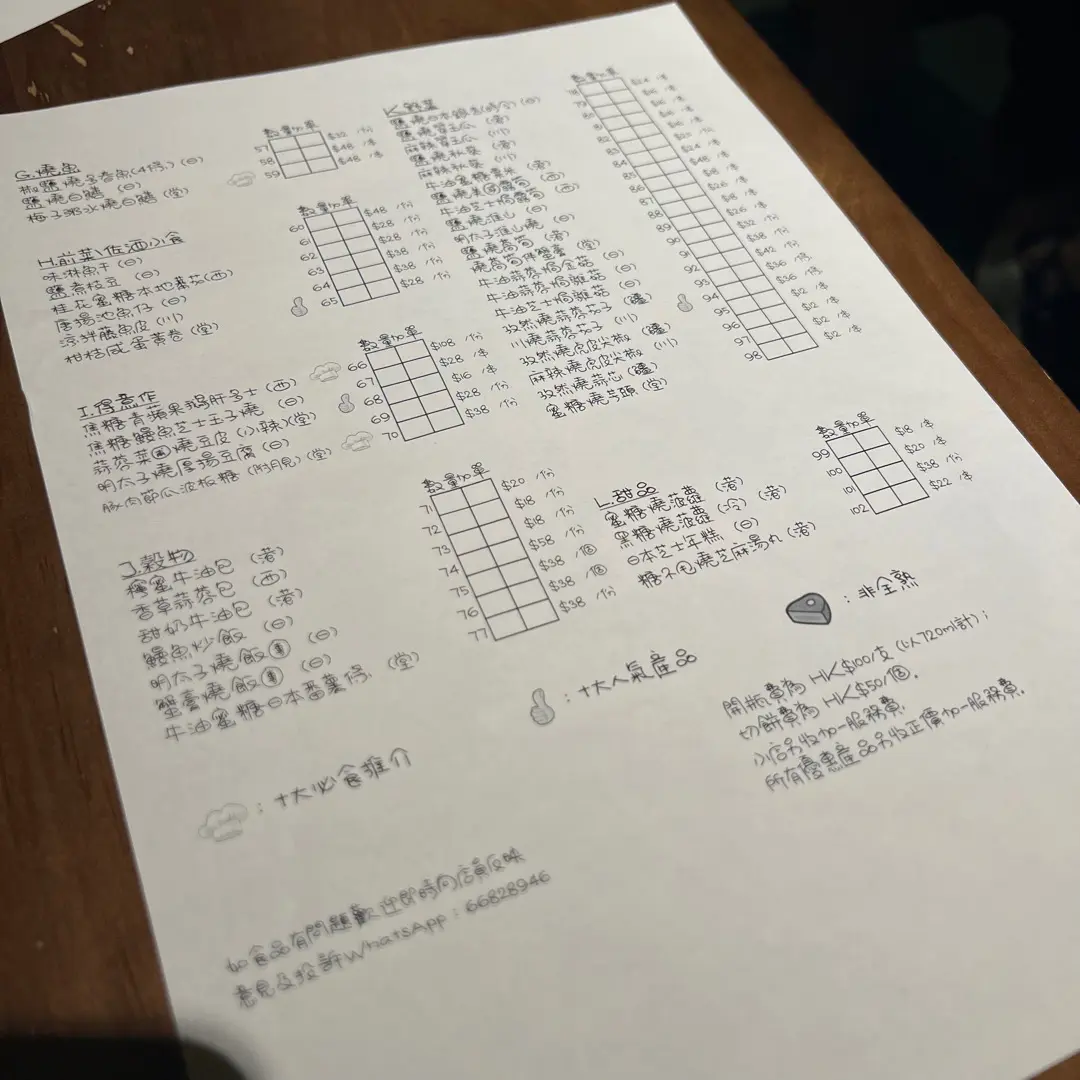 G.燒魚
椒鹽燒多春魚(4條)(日)
鹽燒白鱔 (日)
梅子粥水燒白鱔 (堂)
數量加單
57 $32 /份
58 $48 /串
59 $48 /串
H.前菜、佐酒小食
味淋魚干 (日)
鹽煮枝豆 (日)
桂花蜜糖本地番茄(西)
唐揚池魚仔 (日)
涼拌藤魚皮 (川)
柑桔咸蛋黃卷 (堂)
數量加單
60 $48 /份
61 $28 /份
62 $28 /份
63 $38 /份
64 $38 /份
65 $28 /份
I.得意作
焦糖青蘋果鵝肝多士 (西)
焦糖鰻魚芝士玉子燒 (日)
蒜蓉菜圃燒豆皮 (小辣)(堂)
明太子燒厚揚豆腐 (日)
豚肉節瓜波板糖 (附月見)(堂)
數量加單
66 $108 /份
67 $28 /串
68 $16 /串
69 $28 /份
70 $38 /份
J.穀物
檸蜜牛油包 (港)
香草蒜蓉包 (西)
甜奶牛油包 (港)
鰻魚炒飯 (日)
明太子燒飯 (日)
蟹膏燒飯 (日)
牛油蜜糖日本番薯條 (堂)
數量加單
71 $20 /份
72 $18 /份
73 $18 /份
74 $58 /份
75 $38 /個
76 $38 /個
77 $38 /份
K.野菜
麻辣翠玉瓜 (川)
鹽燒秋葵 (港)
麻辣秋葵 (川)
牛油蜜糖粟米 (港)
牛油芝士焗露筍 (西)
鹽燒淮山 (日)
明太子淮山燒 (日)
鹽燒萵筍 (港)
燒萵筍伴蟹膏 (堂)
牛油蒜蓉焗金菇 (日)
牛油蒜蓉焗雜菇 (日)
牛油芝士焗雜菇 (日)
孜然燒蒜蓉茄子 (疆)
川燒蒜蓉茄子 (川)
孜然燒虎皮尖椒 (疆)
麻辣燒虎皮尖椒 (川)
孜然燒蒜芯 (疆)
蜜糖燒芋頭 (堂)
數量加單
L.甜品
蜜糖燒菠蘿 (港)
黑糖燒菠蘿 (冷) (港)
日本芝士年糕 (日)
糖不甩燒芝麻湯丸 (港)
數量加單
99 $18 /串
100 $20 /串
101 $38 /份
102 $22 /串
:非全熟
:十大人氣產品
:十大必食推介
開瓶費為 HK$100/支 (以720ml計);
切餅費為 HK$50/個.
小店另收加一服務費.
所有優惠產品另收正價加一服務費.
如食品有問題歡迎即時向店員反映
意見及投訴WhatsApp : 66828946